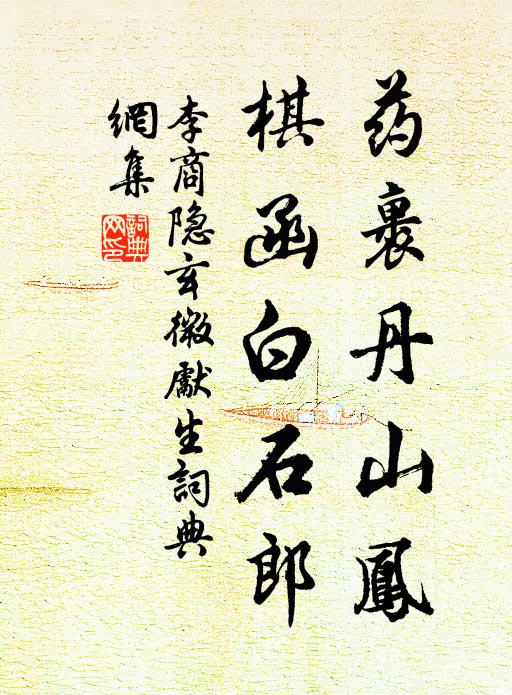 药裹丹山鳳
棋函白石郎
李商隐玄微獻生詞典
網集
詞典